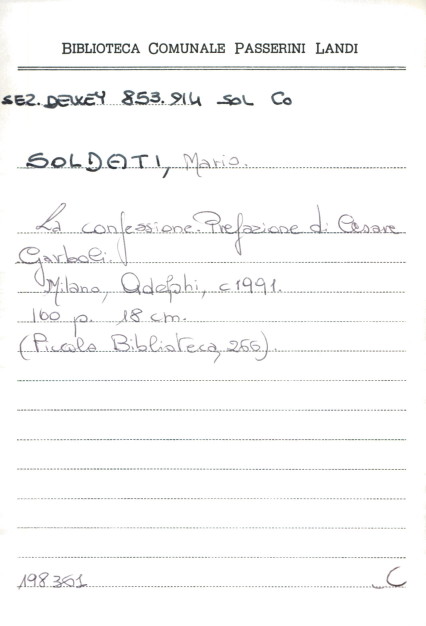 BIBLIOTECA COMUNALE PASSERINI LANDI
SEZ. DEWEY 853.914 SOL Co
SOLDATI, Mario.
La confessione. Prefazione di Cesare
Garboli.
Milano, Adelphi, c1991.
160 p. 18 cm.
(Piccola Biblioteca, 266).
198361 C